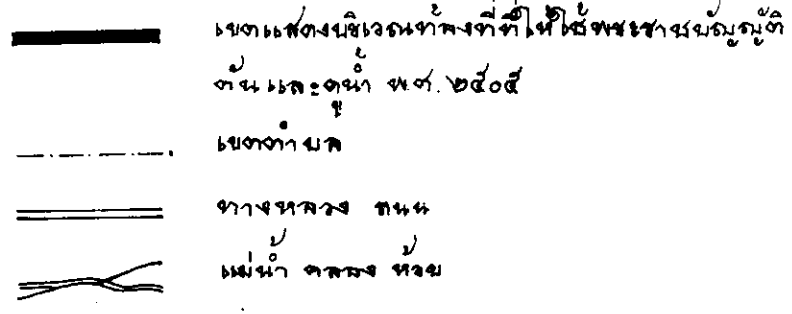 เขตแสดงบริเวณท้องที่ที่ให้ใช้พระราชบัญญัติ
คันและคูน้ำ พ.ศ. ๒๕๐๕
เขตตำบล
ทางหลวง ถนน
แม่น้ำ คลอง ห้วย